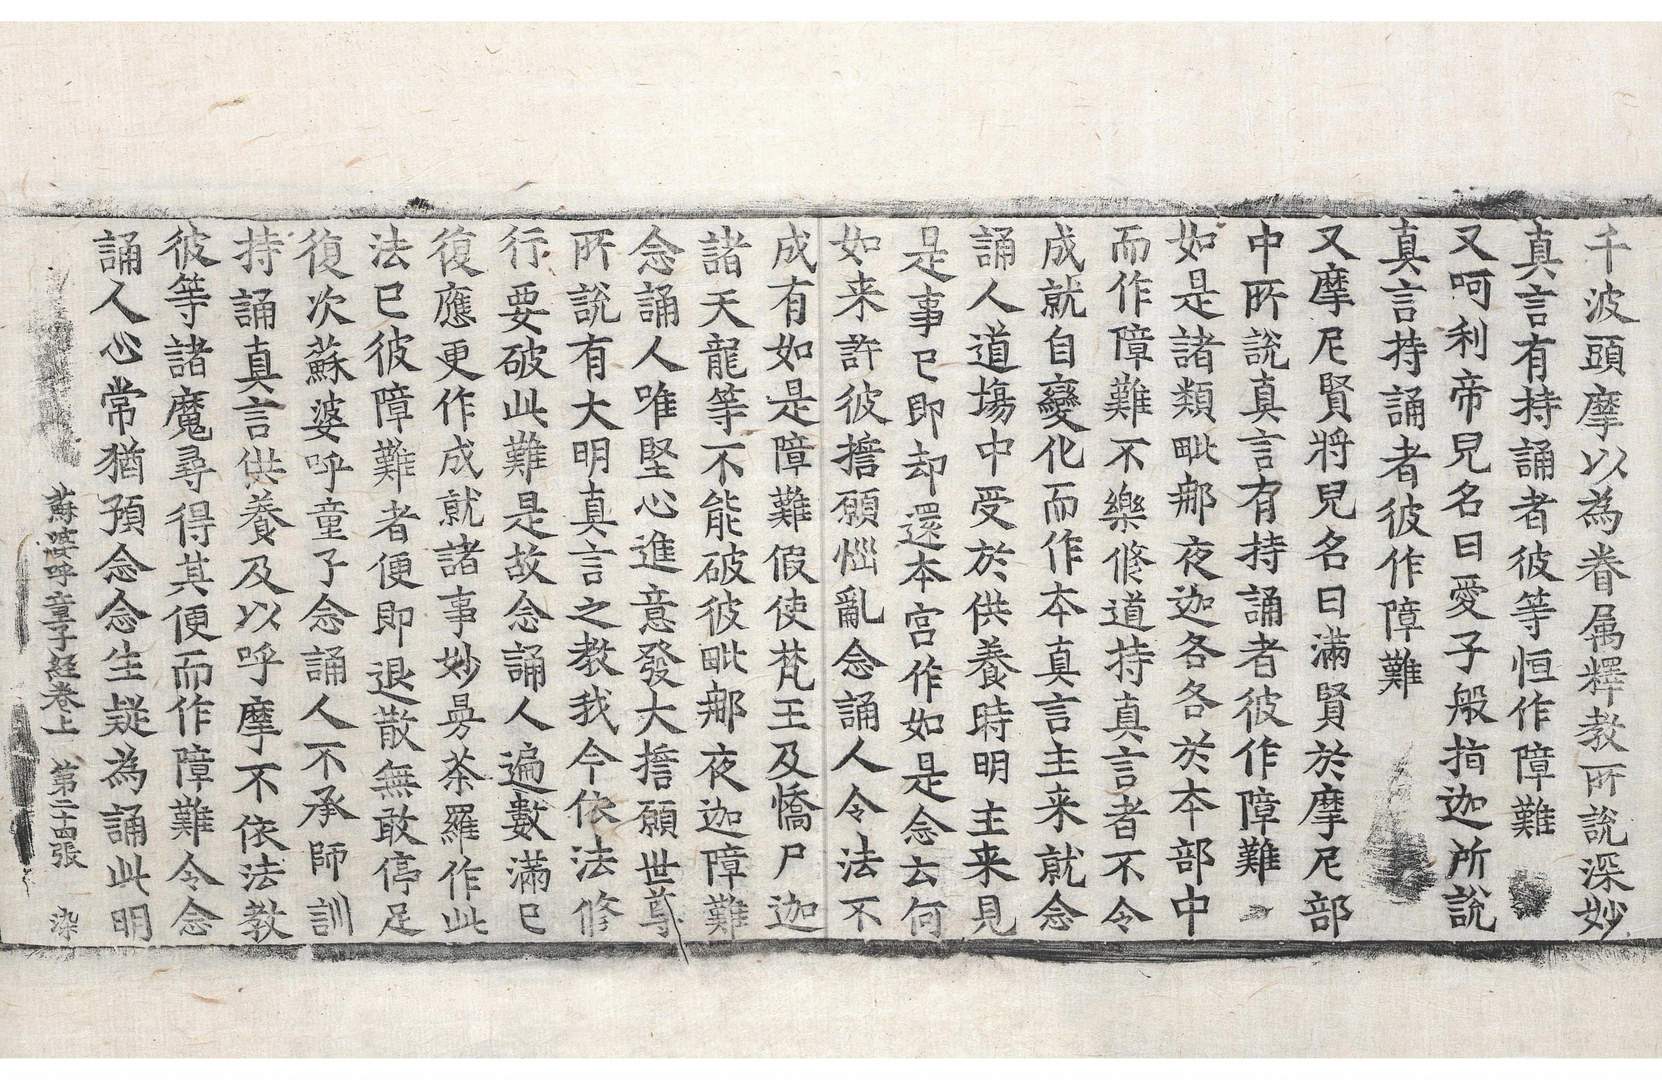 千波頭摩以為眷属釋教所說深妙
真言有持誦者彼等恒作障難
又呵利帝兒名曰愛子般指迦所說
真言持誦者彼作障難
又摩尼賢將兒名曰滿賢於摩尼部
中所說真言有持誦者彼作障難
如是諸類毗那夜迦各各於本部中
而作障難不樂修道持真言者不令
成就自變化而作本真言主来就念
誦人道場中受於供養時明主来見
是事已即却還本宮作如是念云何
如来許彼擔願惱亂念誦人令法不
成有如是障難假使梵王及憍尸迦
諸天龍等不能破彼毗那夜迦障難
念誦人唯堅心進意發大擔願世尊
所說有大明真言之教我今依法修
行要破此難是故念誦人遍數滿已
復應更作成就諸事妙曼荼羅作此
法已彼障難者便即退散無敢停足
復次蘇婆呼童子念誦人不承師訓
持誦真言供養及以呼摩不依法教
彼等諸魔尋得其便而作障難令念
誦人心常猶預念念生疑為誦此明
蘇婆呼童子経卷上 第二十四張 染